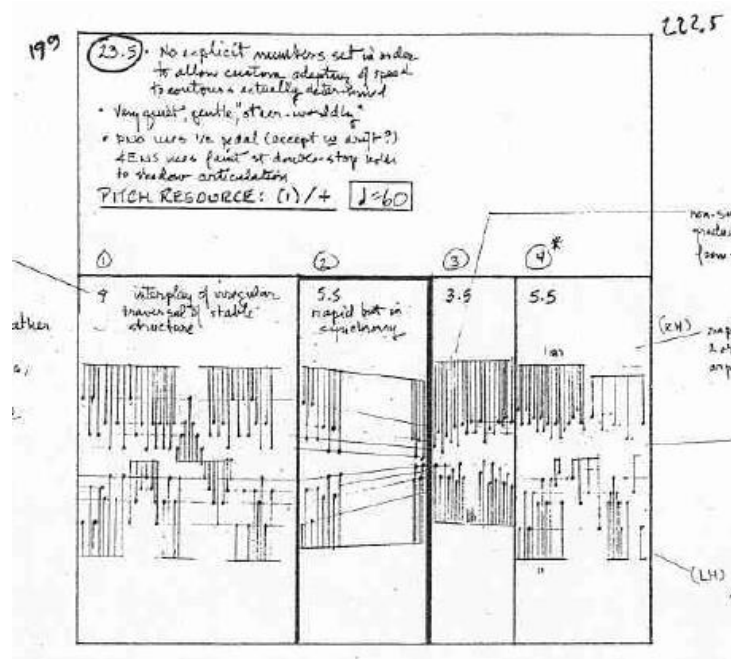 199
222.5
23.5 • No explicit numbers set in order
to allow custom adapting of speed
to contours actually determined
• Very quiet, gentle, "other-worldly"
• PNO uses 1/2 pedal (except in drift?)
4ENS uses faint st double-stop holds
to shadow articulation
PITCH RESOURCE: (1)/+ ♩=60
1
2
3
4*
9 interplay of irregular
traversal of "stable"
structure
5.5
rapid but in
synchrony
3.5
5.5
from
ather
(RH)
(LH)